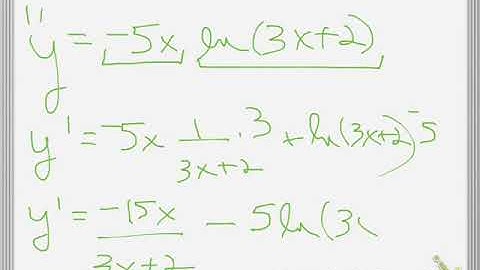 "
y = -5x ln(3x+2)
y' = -5x 1/(3x+2) · 3 + ln(3x+2) -5
y' = -15x/(3x+2) - 5ln(3x